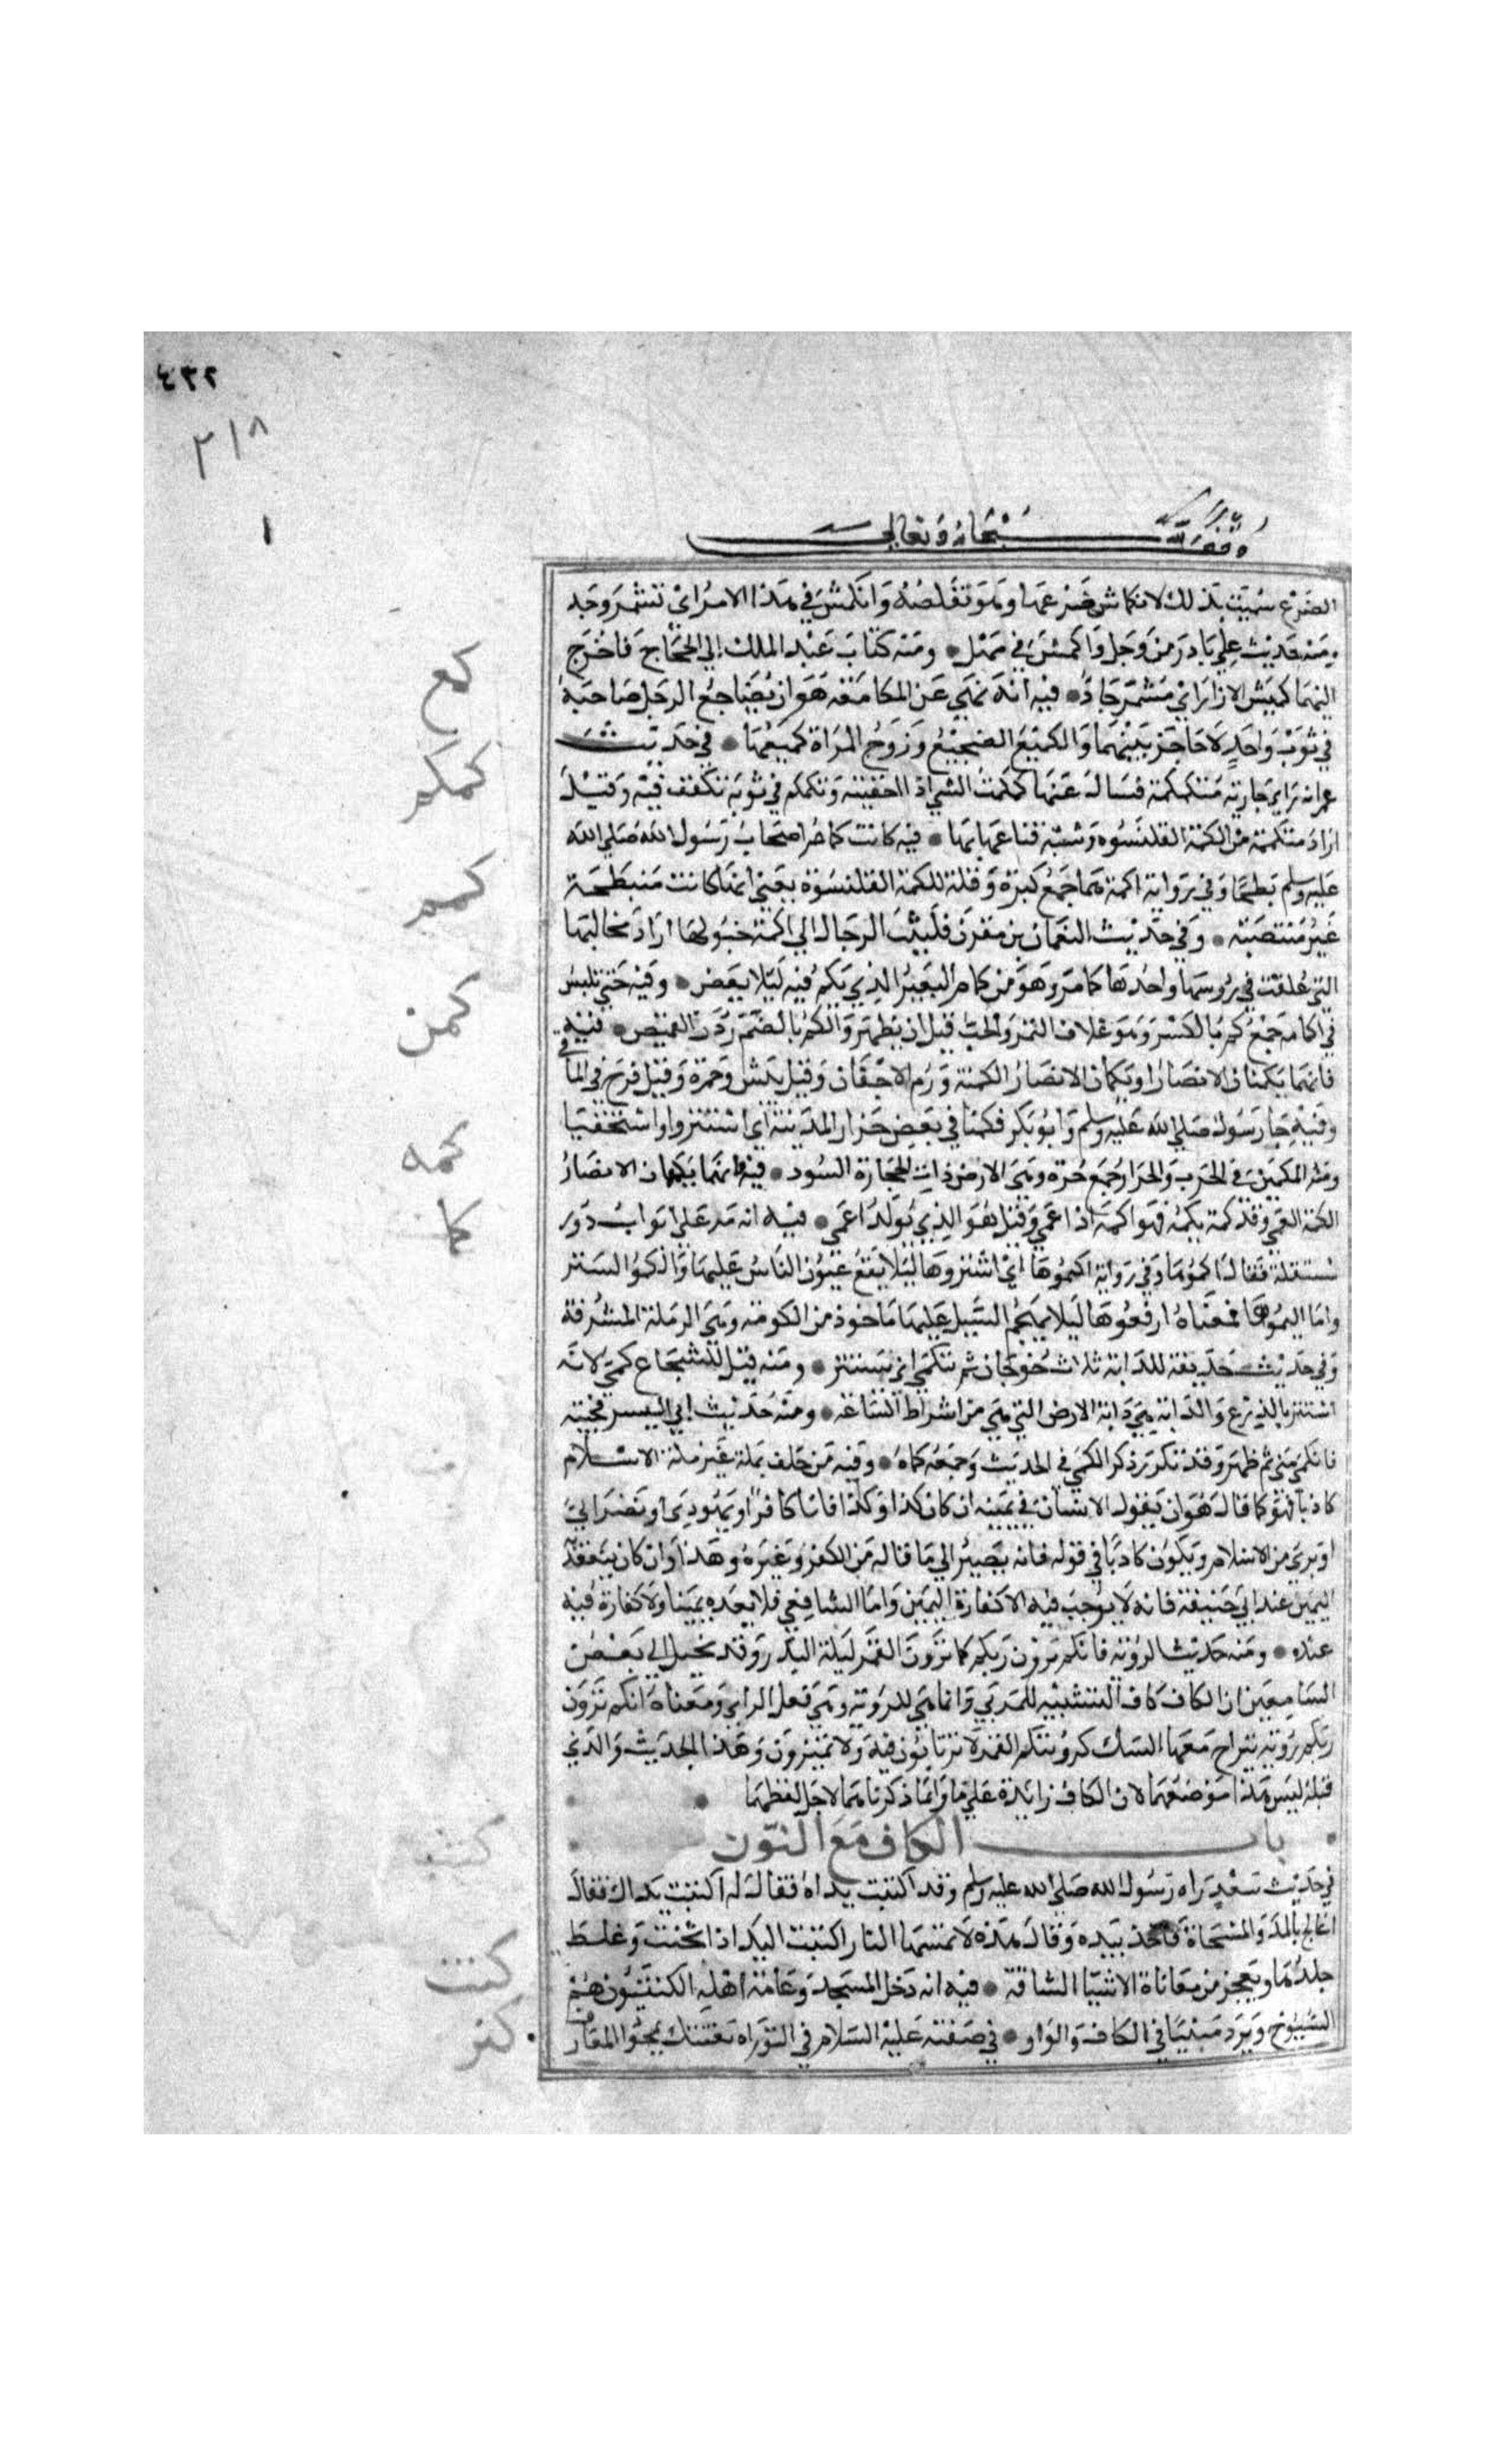 ٤٣٢
٢١٨
١
وقف لله سبحانه وتعالى
الضرع سميت بذلك لانكماش ضرعها وهو تقلصه وانكمش في هذا الامر اي تشمر وجد
ومنه حديث علي بادر من وجل واكمش في مهل ومنه كتاب عبد الملك الي الحجاج فاخرج
اليهما كميش الازار اي مشمر جاد فيه انه نهي عن المكامعة هو ان يضاجع الرجل صاحبه
في ثوب واحد لا حاجز بينهما والكميع الضجيع وزوج المراة كميعها في حديث
عمر انه راي جارية متكمكمة فسال عنها كمكمت الشي اذا اخفيته وتكمكم في ثوبه تلفف فيه وقيل
اراد متكممة من الكمة القلنسوه وشبه قناعها بها فيه كانت كمام اصحاب رسول الله صلي الله
عليه وسلم بطحا وفي رواية اكمة هما جمع كثرة وقلة للكمة القلنسوة يعني انها كانت منبطحة
غير منتصبة وفي حديث النعمان بن مقرن فليثب الرجال الي اكمة خيولها اراد مخاليها
التي علقت في روسها واحدها كمام وهو من كمام البعير الذي يكم فيه ليلا يعض وفيه حتي تلبس
في اكمامه جمع كم بالكسر وهو غلاف الثمر والحب قبل ان يظهر والكم بالضم ردن القميص فيه
فانهما يكمنان الابصار او يكمهان الابصار الكمنة ورم الاجفان وقيل يبس وحمرة وقيل قرح في الماقي
وفيه جا رسول الله صلي الله عليه وسلم وابو بكر فكمنا في بعض حرار المدينة اي استترا واستخفيا
ومنه الكمين في الحرب والحرار جمع حرة وهي الارض ذات الحجارة السود فيه فانهما يكمهان الابصار
الكمه العمي وقد كمه يكمه فهو اكمه اذا عمي وقيل هو الذي يولد اعمي فيه انه مر علي ابواب دور
مستفلة فقال اكموها وفي رواية اكيموها اي استروها ليلا يقع عيون الناس عليها والكمو الستر
واما اكيموها فمعناه ارفعوها ليلا يهجم السيل عليها ماخوذ من الكومة وهي الرملة المشرفة
وفي حديث حذيفة للدابة ثلاث خرجات ثم تنكمي اي تستتر ومنه قيل للشجاع كمي لانه
استتر بالدرع والدابة هي دابة الارض التي هي من اشراط الساعة ومنه حديث ابي اليسر فجيته
فانكمي مني ثم ظهر وقد تكرر ذكر الكمي في الحديث وجمعه كماه وفيه من حلف بملة غير ملة الاسلام
كاذبا فهو كما قال هو ان يقول الانسان في يمينه ان كان كذا وكذا فانا كافر او يهودي او نصراني
او بري من الاسلام ويكون كاذبا في قوله فانه يصير الي ما قاله من الكفر وغيره وهذا وان كان ينعقد
اليمين عند ابي حنيفة فانه لا يوجب فيه الا كفارة اليمين واما الشافعي فلا يعده يمينا ولا كفارة فيه
عنده ومنه حديث الروية فانكم ترون ربكم كما ترون القمر ليلة البدر وقد يخيل الي بعض
السامعين ان الكاف كاف التشبيه للمرئي وانما هي للروية وهي فعل الرائي ومعناه انكم ترون
ربكم روية ينزاح معها الشك كرويتكم القمر لا ترتابون فيه ولا تمترون وهذا الحديث والذي
قبله ليس هذا موضعهما لان الكاف زائدة علي ما وانما ذكرناهما لاجل لفظهما
باب الكاف مع النون
في حديث سعد راه رسول الله صلي الله عليه وسلم وقد اكنبت يداه فقال له اكنبت يداك فقال
اعالج بالمر والمسحاة فاخذ بيده وقال هذه لا تمسها النار اكنبت اليد اذا ثخنت وغلظ
جلدها وتعجر من معاناة الاشيا الشاقة فيه انه دخل المسجد وعامة اهله الكنتيون هم
الشيوخ ويرد مبينا في الكاف والواو في صفته عليه السلام في التوراه بعثتك بمحو المعازف
كمع
كمكم
كمم
كمن
كمه
كما
كنب
كنت
كنر